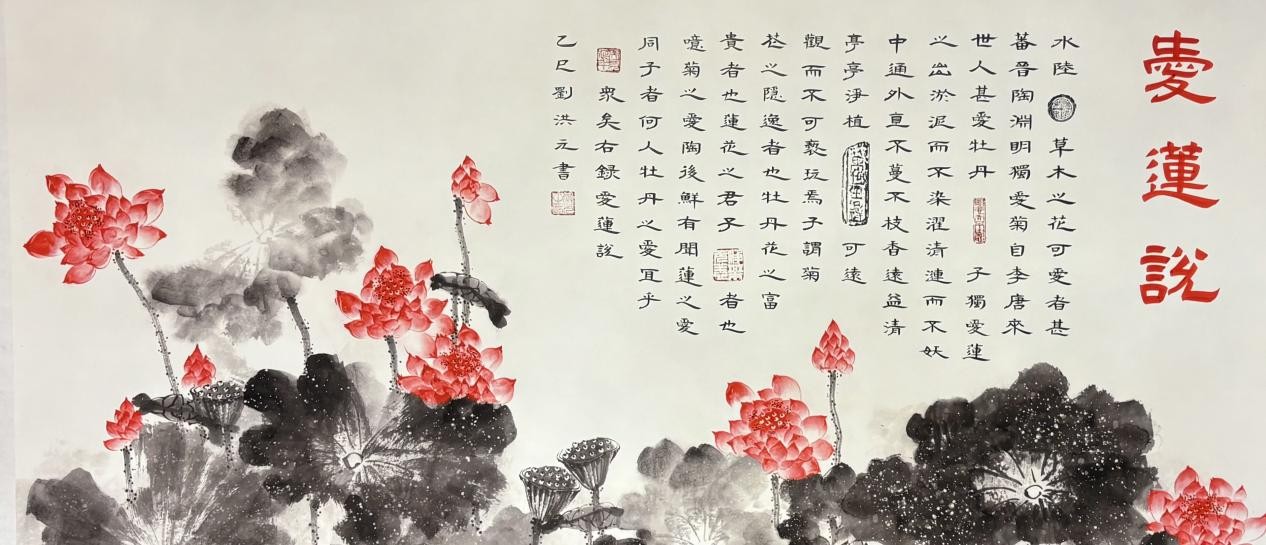 愛蓮說
水陸草木之花可愛者甚
蕃晉陶淵明獨愛菊自李唐來
世人甚愛牡丹予獨愛蓮
之出淤泥而不染濯清漣而不妖
中通外直不蔓不枝香遠益清
亭亭淨植可遠
觀而不可褻玩焉予謂菊
花之隱逸者也牡丹花之富
貴者也蓮花之君子者也
噫菊之愛陶後鮮有聞蓮之愛
同予者何人牡丹之愛宜乎
衆矣右録愛蓮說
乙巳劉洪元書